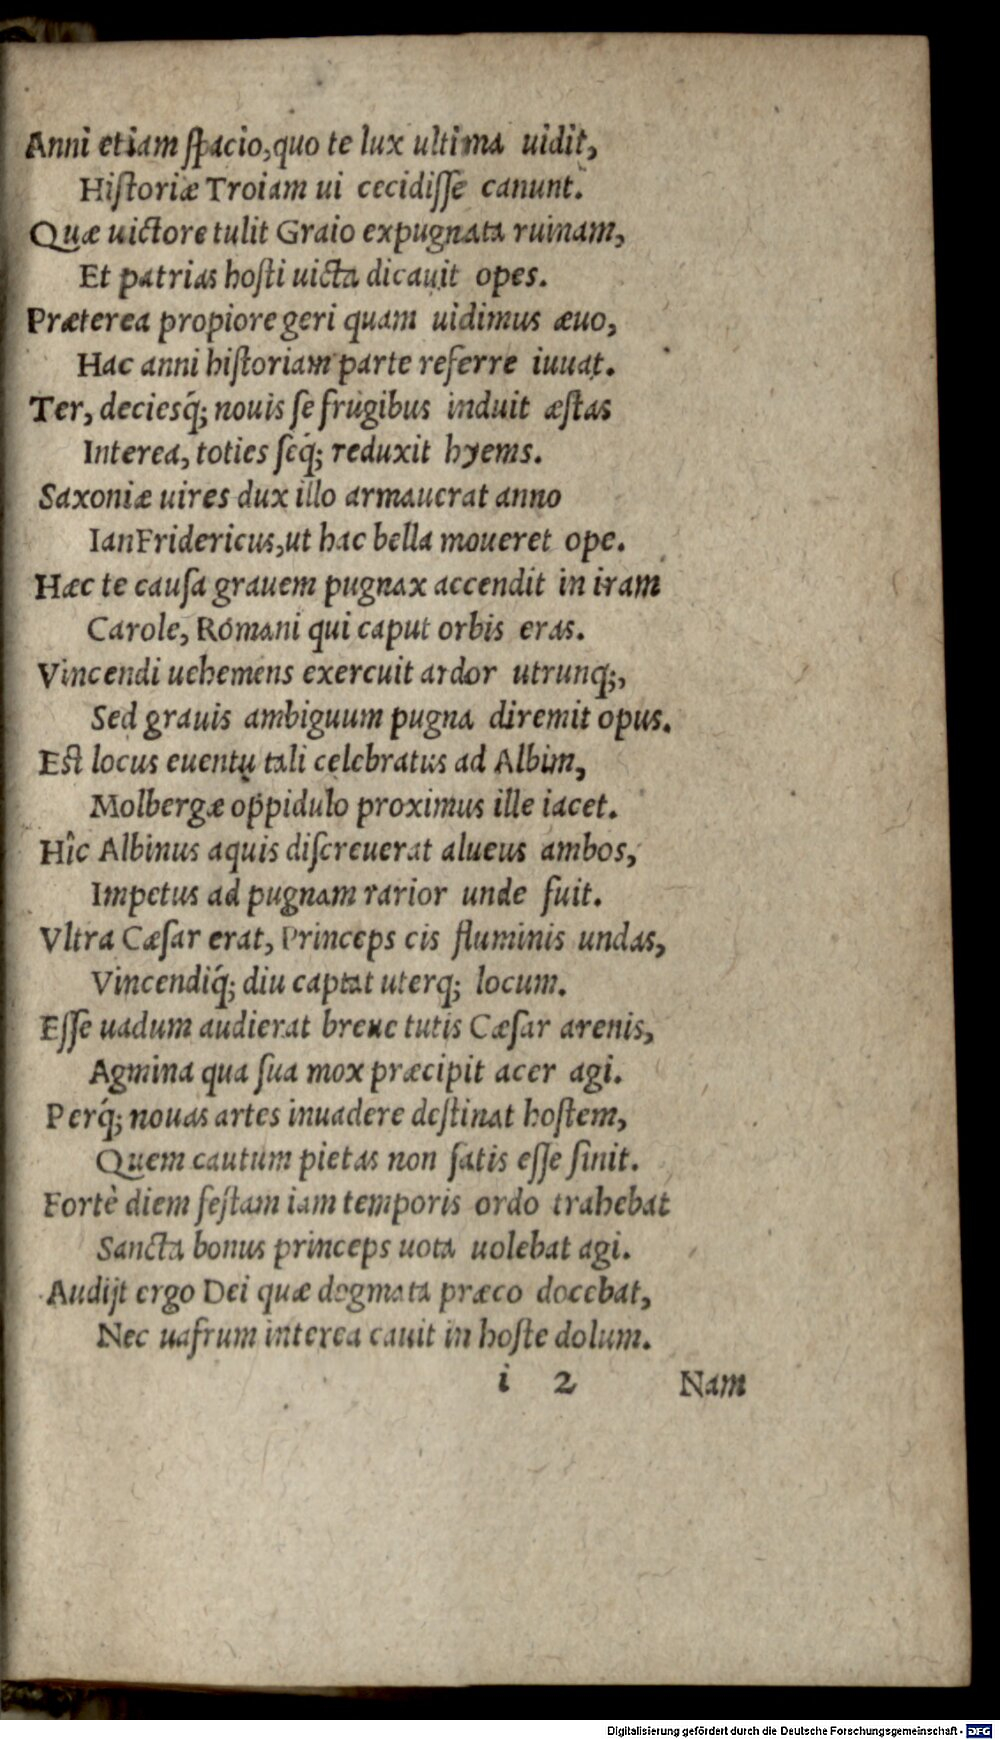 Anni etiam ſpacio,quo te lux ultima uidit,
Hiſtoriæ Troiam ui cecidiſſe canunt.
Quæ uictore tulit Graio expugnata ruinam,
Et patrias hoſti uicta dicauit opes.
Præterea propiore geri quam uidimus æuo,
Hac anni hiſtoriam parte referre iuuat.
Ter, deciesq́; nouis ſe frugibus induit æſtas
Interea, toties ſeq́; reduxit hyems.
Saxoniæ uires dux illo armauerat anno
IanFridericus,ut hac bella moueret ope.
Hæc te cauſa grauem pugnax accendit in iram
Carole, Romani qui caput orbis eras.
Vincendi uehemens exercuit ardor utrunq;,
Sed grauis ambiguum pugna diremit opus.
Eſt locus euentu tali celebratus ad Albim,
Molbergæ oppidulo proximus ille iacet.
Hîc Albinus aquis diſcreuerat alueus ambos,
Impetus ad pugnam rarior unde fuit.
Vltra Cæſar erat, Princeps cis fluminis undas,
Vincendiq́; diu captat uterq; locum.
Eſſe uadum audierat breue tutis Cæſar arenis,
Agmina qua ſua mox præcipit acer agi.
Perq́; nouas artes inuadere deſtinat hoſtem,
Quem cautum pietas non ſatis eſſe ſinit.
Fortè diem feſtam iam temporis ordo trahebat
Sancta bonus princeps uota uolebat agi.
Audijt ergo Dei quæ dogmata præco docebat,
Nec uafrum interea cauit in hoſte dolum.
i 2 Nam
Digitalisierung gefördert durch die Deutsche Forschungsgemeinschaft - DFG